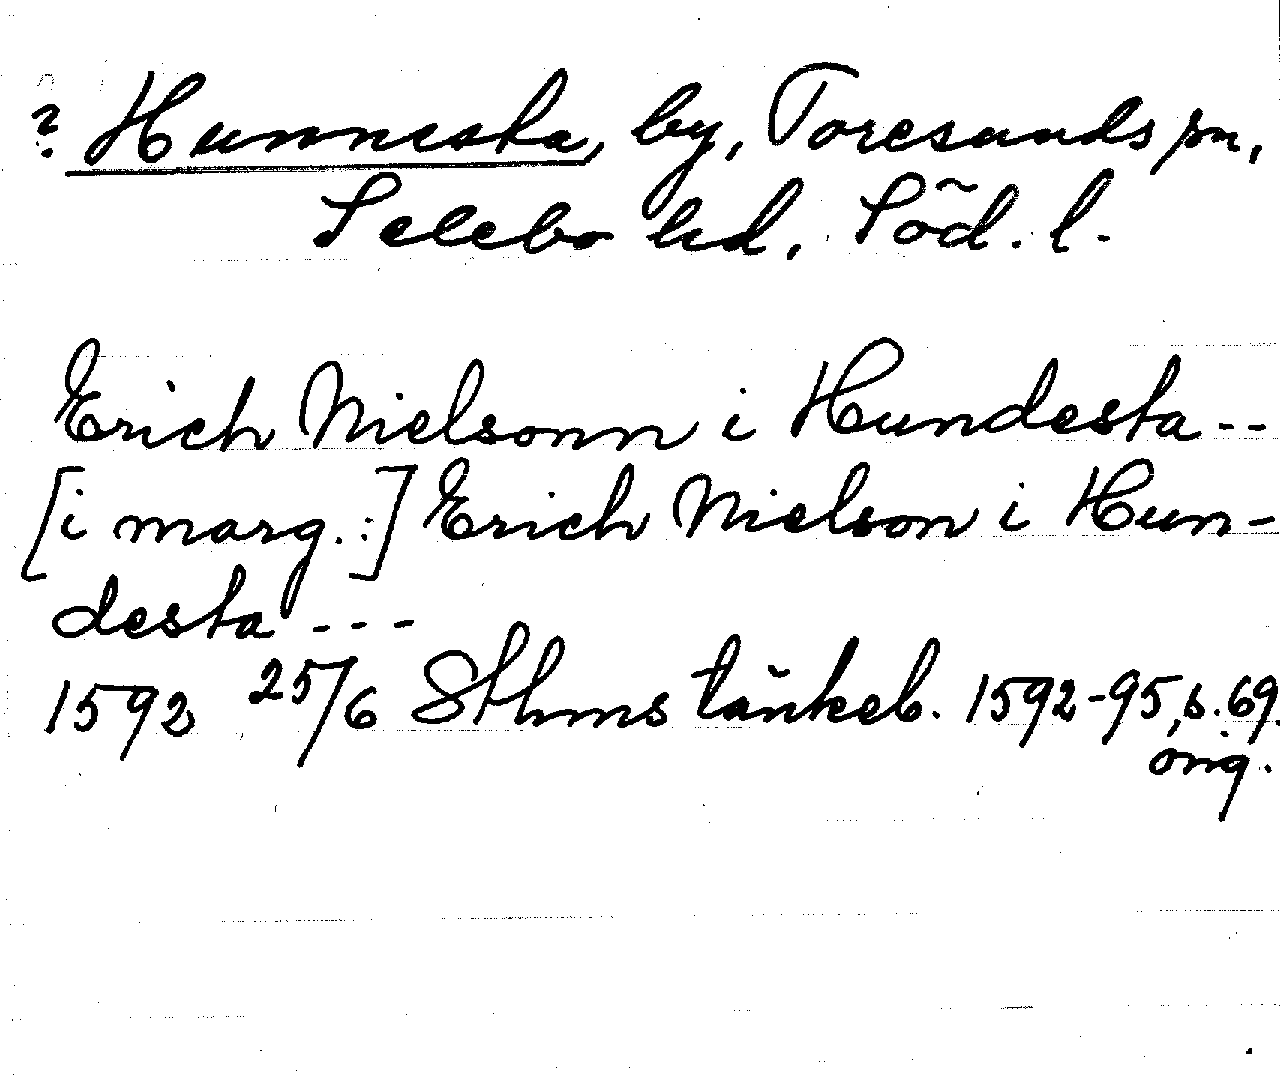 ? Hunnesta, by, Toresunds sn,
Selebo hd, Söd. l.
Erich Nielsonn i Hundesta --
[i marg.:] Erich Nielson i Hun-
desta ---
1592 25/6 Sthms tänkeb. 1592-95, s. 69.
orig.